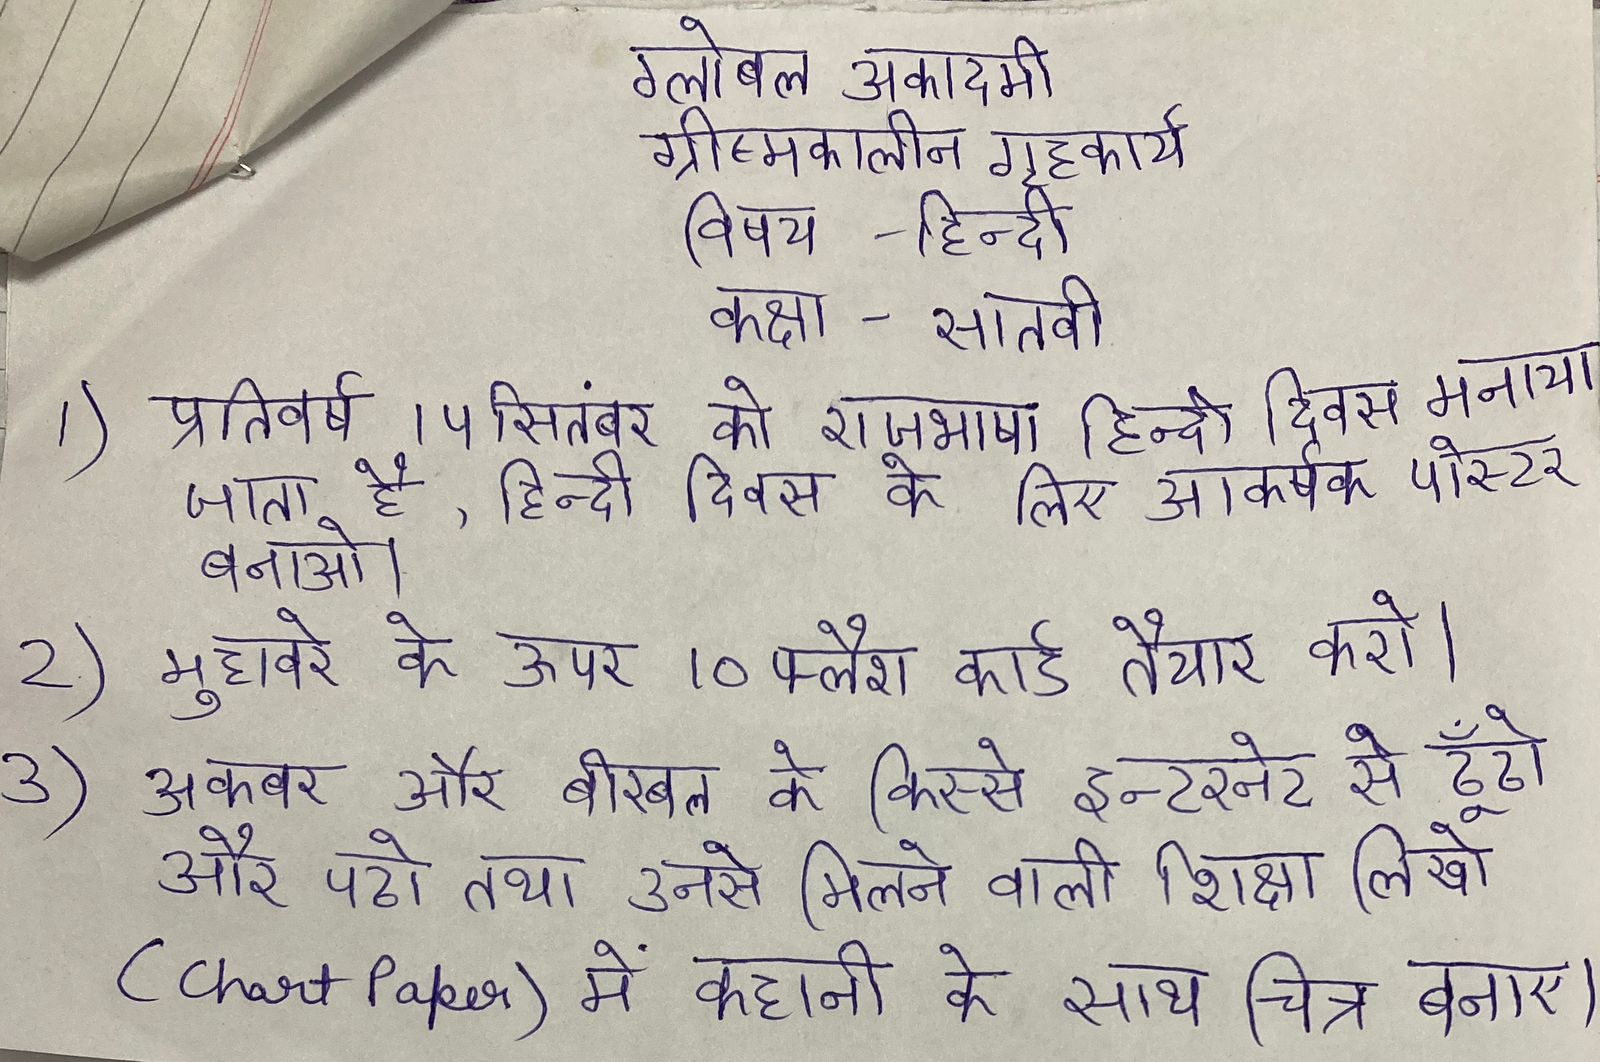 ग्लोबल अकादमी
ग्रीष्मकालीन गृहकार्य
विषय - हिन्दी
कक्षा - सातवी
1) प्रतिवर्ष 14 सितंबर को राजभाषा हिन्दी दिवस मनाया
जाता है, हिन्दी दिवस के लिए आकर्षक पोस्टर
बनाओ।
2) मुहावरे के ऊपर 10 फ्लैश कार्ड तैयार करो।
3) अकबर और बीरबल के किस्से इन्टरनेट से ढूँढो
और पढो तथा उनसे मिलने वाली शिक्षा लिखो
(Chart Paper) में कहानी के साथ चित्र बनाए।